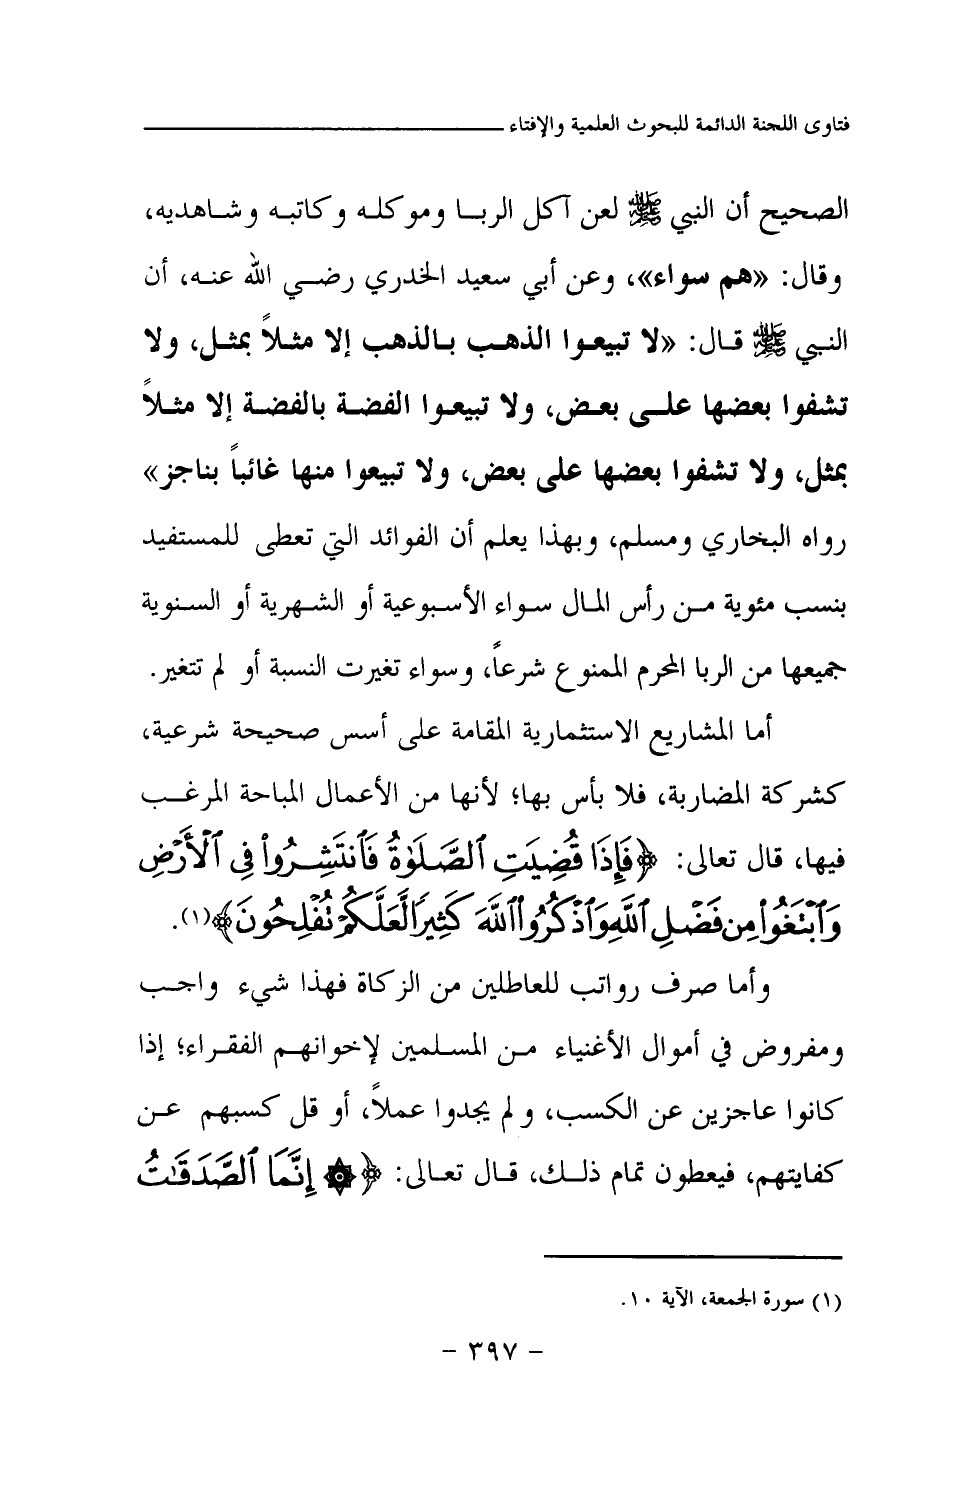 فتاوى اللجنة الدائمة للبحوث العلمية والإفتاء
الصحيح أن النبي ﷺ لعن آكل الربا وموكله وكاتبه وشاهديه،
وقال: «هم سواء»، وعن أبي سعيد الخدري رضي الله عنه، أن
النبي ﷺ قال: «لا تبيعوا الذهب بالذهب إلا مثلاً بمثل، ولا
تشفوا بعضها على بعض، ولا تبيعوا الفضة بالفضة إلا مثلاً
بمثل، ولا تشفوا بعضها على بعض، ولا تبيعوا منها غائباً بناجز»
رواه البخاري ومسلم، وبهذا يعلم أن الفوائد التي تعطى للمستفيد
بنسب مئوية من رأس المال سواء الأسبوعية أو الشهرية أو السنوية
جميعها من الربا المحرم الممنوع شرعاً، وسواء تغيرت النسبة أو لم تتغير.
أما المشاريع الاستثمارية المقامة على أسس صحيحة شرعية،
كشركة المضاربة، فلا بأس بها؛ لأنها من الأعمال المباحة المرغب
فيها، قال تعالى: ﴿فَإِذَا قُضِيَتِ ٱلصَّلَوٰةُ فَٱنتَشِرُوا۟ فِى ٱلْأَرْضِ
وَٱبْتَغُوا۟ مِن فَضْلِ ٱللَّهِ وَٱذْكُرُوا۟ ٱللَّهَ كَثِيرًا لَّعَلَّكُمْ تُفْلِحُونَ﴾(١).
وأما صرف رواتب للعاطلين من الزكاة فهذا شيء واجب
ومفروض في أموال الأغنياء من المسلمين لإخوانهم الفقراء؛ إذا
كانوا عاجزين عن الكسب، ولم يجدوا عملاً، أو قل كسبهم عن
كفايتهم، فيعطون تمام ذلك، قال تعالى: ﴿۞ إِنَّمَا ٱلصَّدَقَـٰتُ
(١) سورة الجمعة، الآية ١٠.
- ٣٩٧ -